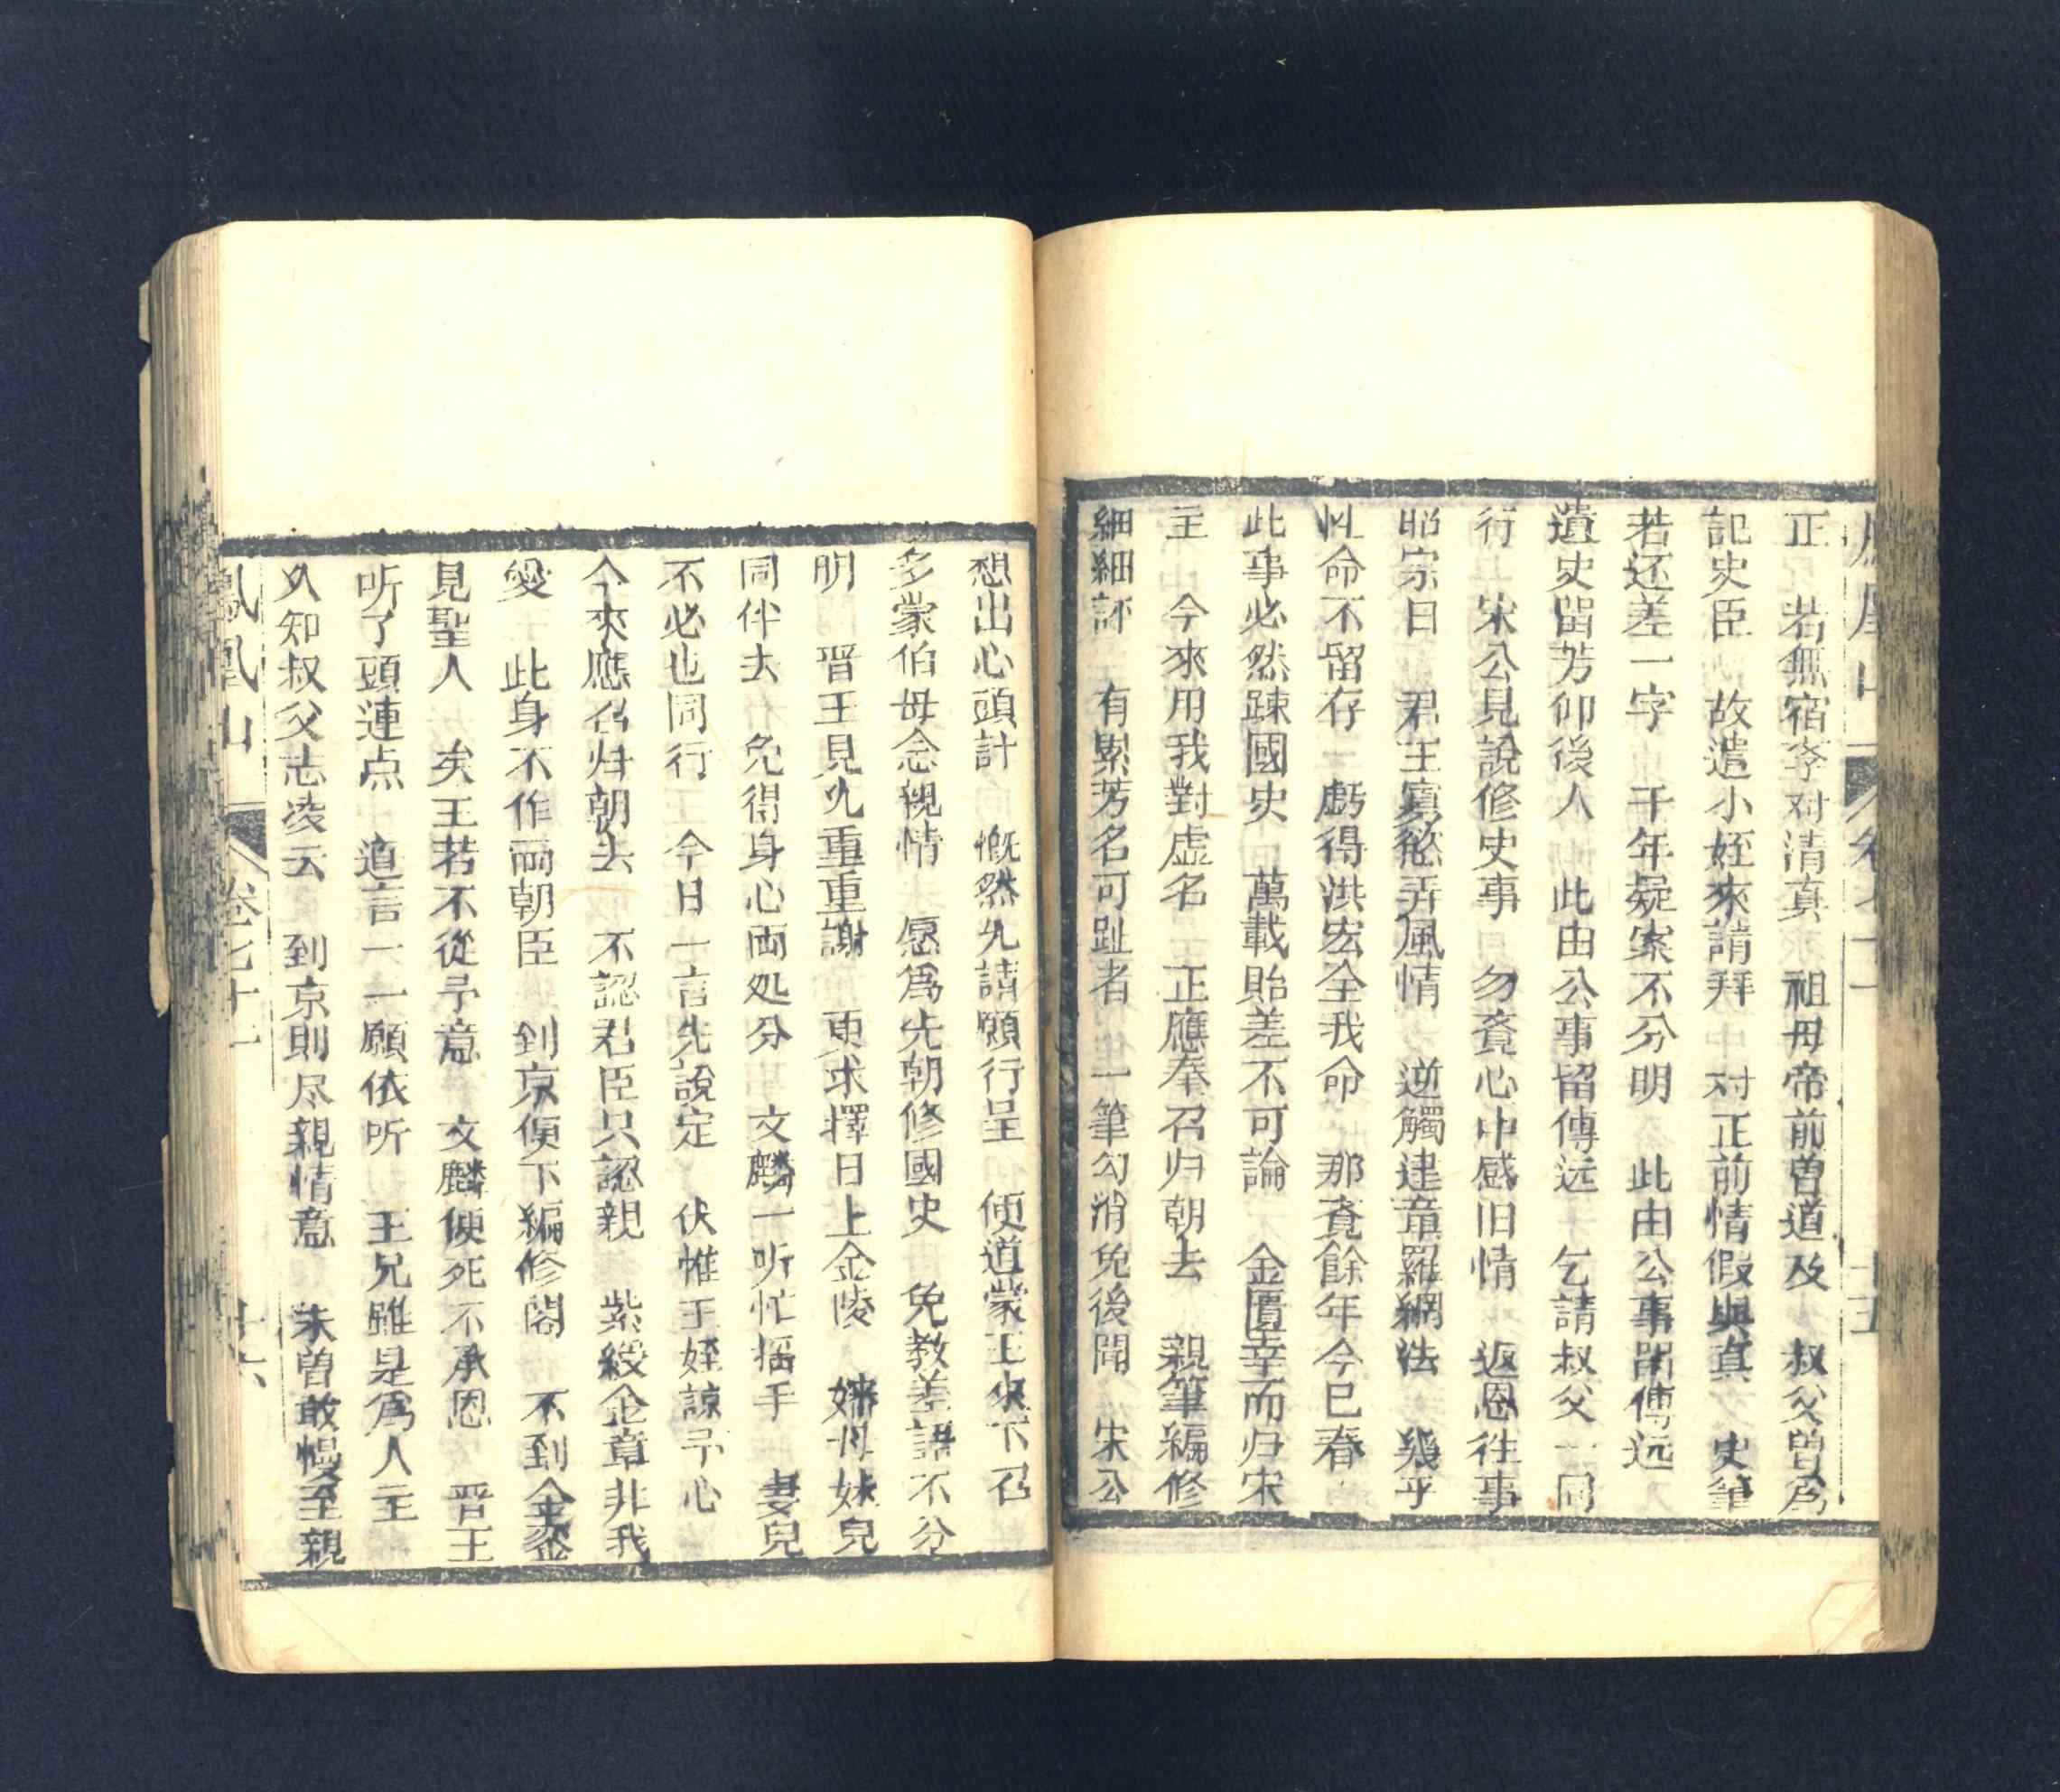 正 若無宿孛对清真 祖母帝前曽道及 叔父曽為
記史臣 故遣小姪來請拜 对正前情假與真 史筆
若还差一字 千年疑案不分明 此由公事留傳远
遺史留芳仰後人 此由公事留傳远 乞請叔父一同
行 宋公見說修史事 勿賫心中感旧情 返恩往事
昭宗日 君王寡慾弄風情 逆觸建章羅網法 幾乎
性命不留存 虧得洪宏全我命 那賫餘年今已春
此事必然踈國史 萬載貽差不可論 金匱幸而归宋
主 今來用我對虛名 正應奉召归朝去 親筆編修
細細評 有累芳名可趾者 一筆勾消免後聞 宋公
想出心頭計 慨然允請願行呈 便道蒙王來下召
多蒙伯母念親情 愿爲先朝修國史 免教差語不分
明 晋王見允重重謝 更求擇日上金陵 嬸母妹兒
同伴去 免得身心両処分 文麟一听忙揺手 妻兒
不必也同行 今日一言先說定 伏惟王姪諒予心
今來應召归朝去 不認君臣只認親 紫綬金章非我
愛 此身不作両朝臣 到京便下編修閣 不到金鑾
見聖人 矣王若不從予意 文麟便死不承恩 晋王
听了頭連点 道言一一願依听 王兄雖是爲人主
久知叔父志凌云 到京則尽親情意 未曽敢慢至親
鳳凰山 卷七十一 十六